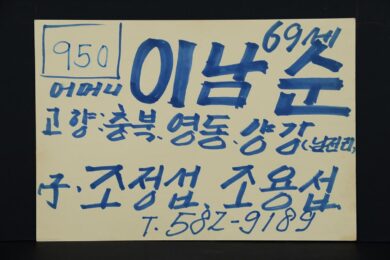 950
69세
어머니 이남순
고향·충북, 영동·양강(남전리)
子·조정섭, 조용섭
T. 582-9189